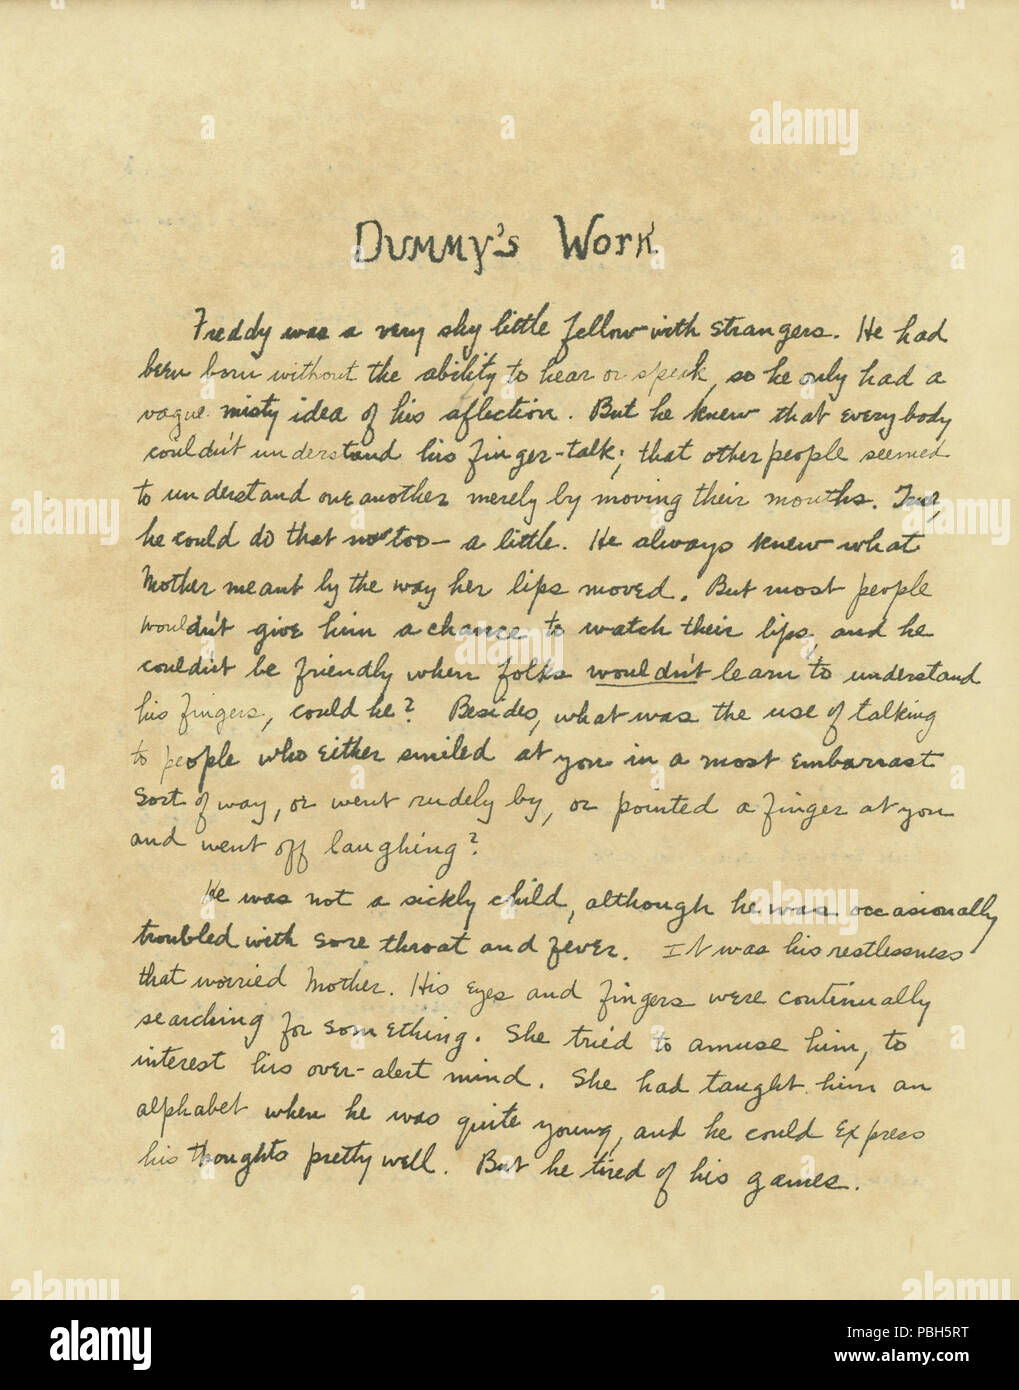 Dummy's Work
Freddy was a very shy little fellow with strangers. He had
been born without the ability to hear or speak, so he only had a
vague misty idea of his afflection. But he knew that everybody
couldn't understand his finger-talk; that other people seemed
to understand one another merely by moving their mouths. True,
he could do that too - a little. He always knew what
Mother meant by the way her lips moved. But most people
wouldn't give him a chance to watch their lips, and he
couldn't be friendly when folks wouldn't learn to understand
his fingers, could he? Besides, what was the use of talking
to people who either smiled at you in a most embarrast
sort of way, or went rudely by, or pointed a finger at you
and went off laughing?
He was not a sickly child, although he was occasionally
troubled with sore throat and fever. It was his restlessness
that worried Mother. His eyes and fingers were continually
searching for something. She tried to amuse him, to
interest his over-alert mind. She had taught him an
alphabet when he was quite young, and he could express
his thoughts pretty well. But he tired of his games.
alamy
Image ID: PBH5RT
www.alamy.com